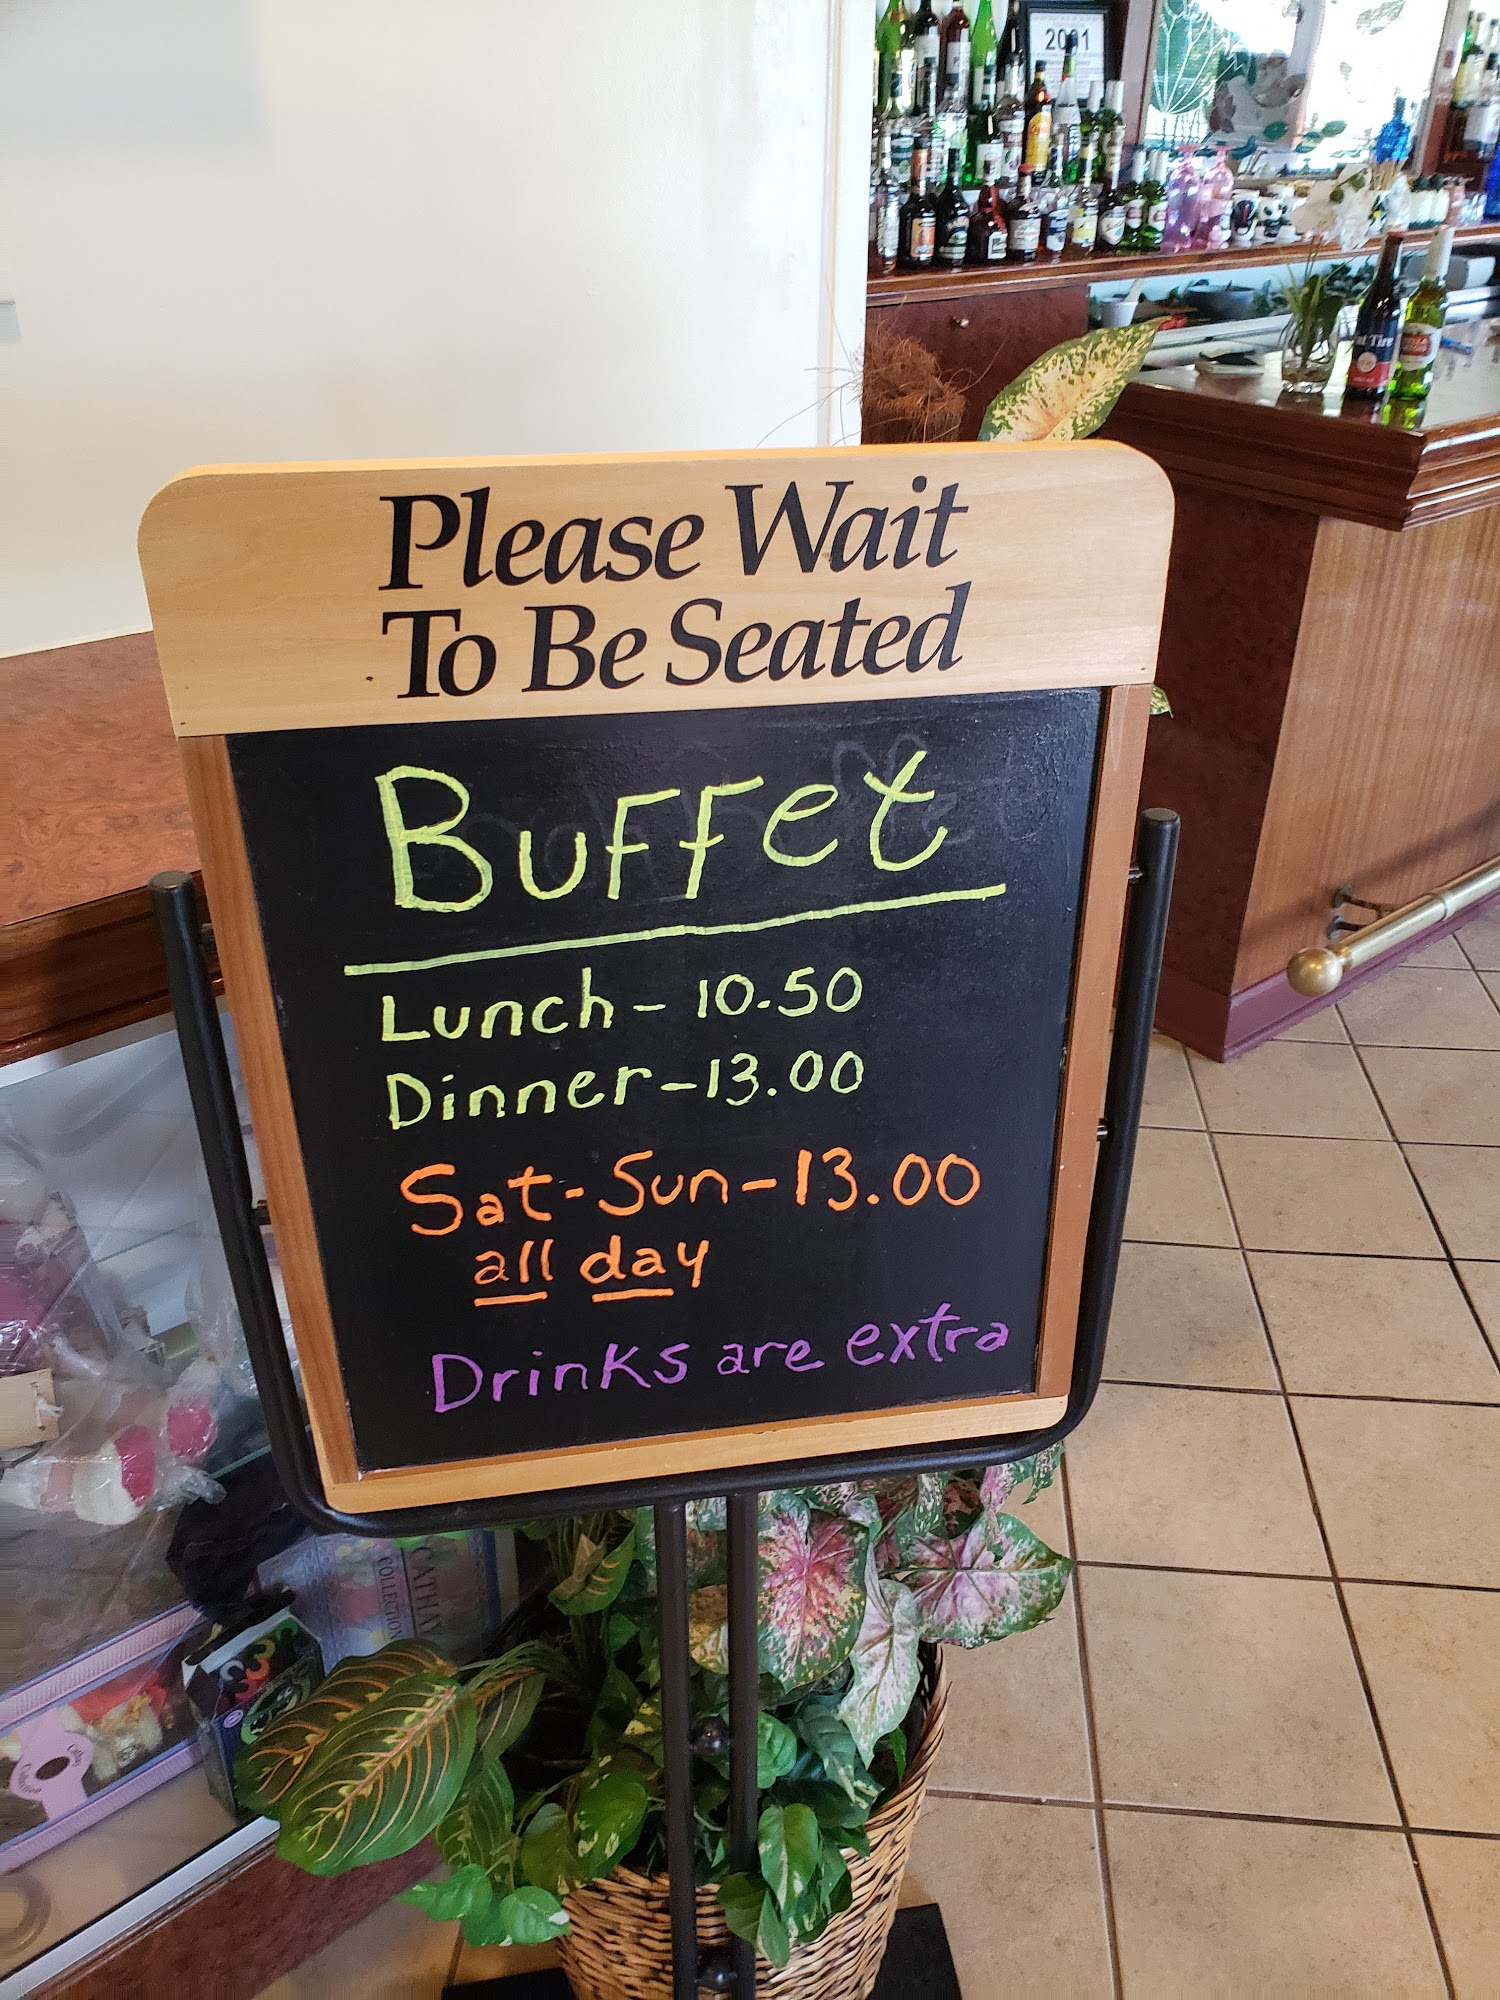 2001
at Tire
Please Wait
To Be Seated
Buffet
Lunch - 10.50
Dinner - 13.00
Sat - Sun - 13.00
all day
Drinks are extra
CATHAY
COLLECTION